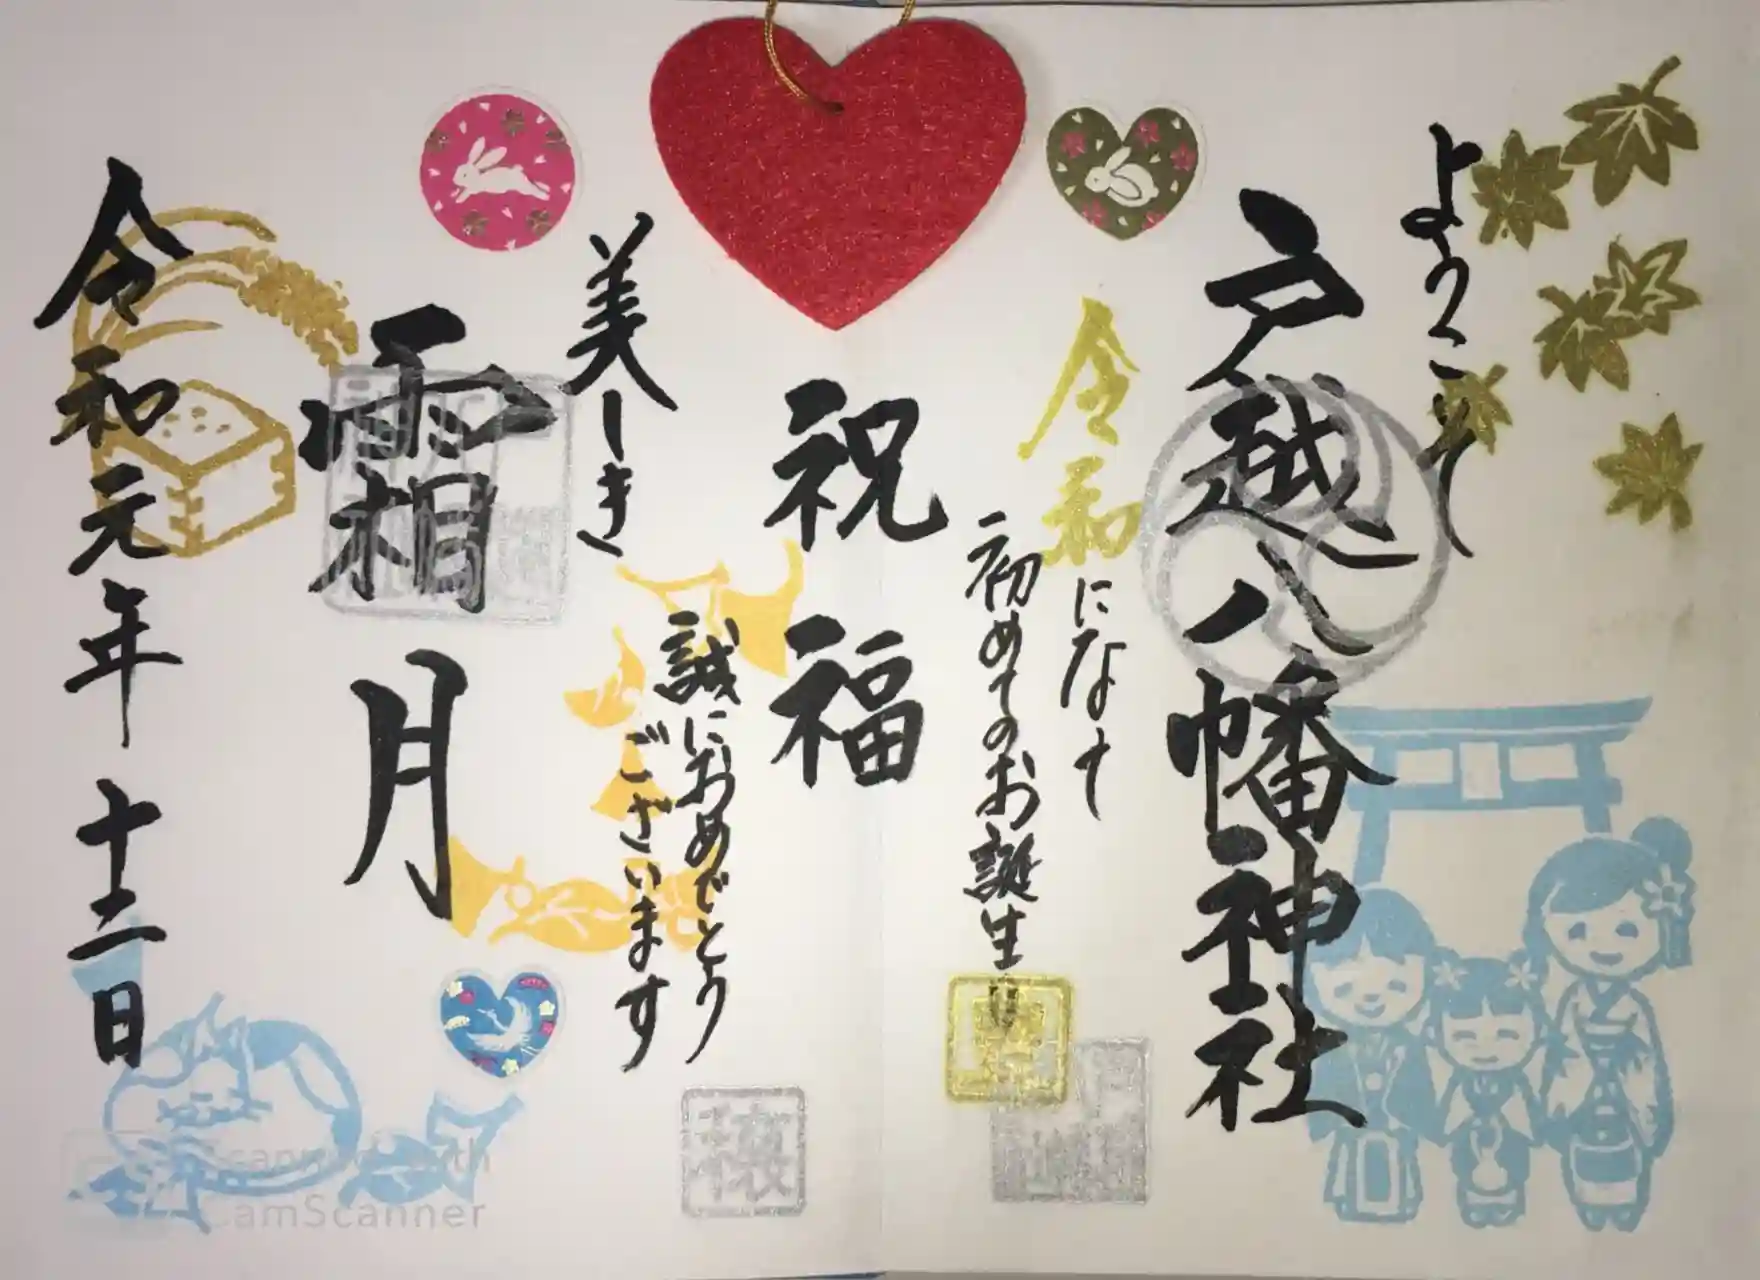 ようこそ
戸越八幡神社
令和になって
初めてのお誕生日
祝福
誠におめでとう
ございます
美しき
霜月
令和元年十二日
穣
Scanned with
CamScanner